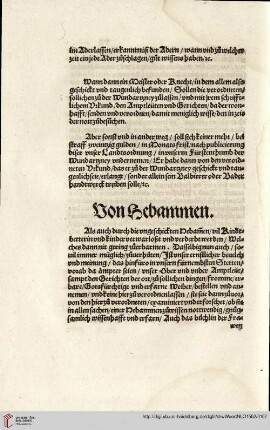 Im Aderlassen/ erkanntnuß der Adern/ wann vnd zu welcher
zeit ein jede Ader zuschlagen/ gůt wissens haben/ ꝛc.
Wann dann ein Meister oder Knecht/ in dem allem also
geschickt vnd taugenlich befunden/ Sollen die verordneten/
sollichen zů der Wundartzney zulassen/ vnd mit jrem schrifft-
lichem Vrkund/ den Amptleüten vnd Gerichten/ da der won-
hafft/ senden vnd verordnen/ damit meniglich wisse/ den in zeit
der not zubestellen.
Aber sonst vnd in ander weg/ soll sich keiner mehr/ bey
straff zweintzig gulden/ in Monats frist/ nach publicierung
diser vnser Landtsordnung/ in vnserm Fürstenthumb der
Wundartzney vndernemen/ Er habe dann von den verord-
neten Vrkund/ das er zů der Wundartzney geschickt vnd taugen-
lich seie/ erlangt/ sonder allein sein Balbierer oder Bader
handtwerck treyben solle/ ꝛc.
Von Hebammen.
Als auch durch die vngeschickten Hebammen/ vil Kinds-
betterin vnd kinder verwarloßt vnd verderbt werden/ Wel-
ches dann nit gering zůerbarmen. Dasselbig nun auch/ so
vil immer müglich zůuerhüten/ Ist vnser ernstlicher beuelch
vnd meinung/ das hinfüro in vnsern fürnemsten Stetten/
vorab da ämpter seien/ vnser Ober vnd vnder Amptleüte/
sampt den Gerichten der ort/ zů sollichen dingen/ fromme/ er-
bare/ Gottsförchtige vnd erfarne Weiber/ bestellen vnd an-
nemen/ vnd keine hierzů verordnen lassen/ sie sei dann zuuor
von den hierzů verordneten/ examiniert vnd erforschet/ ob sie
in allen sachen/ einer Hebammen zů wissen notwendig/ gnůg-
samlich wissenhafft vnd erfarn/ Auch das böchlin der Fra-
wen